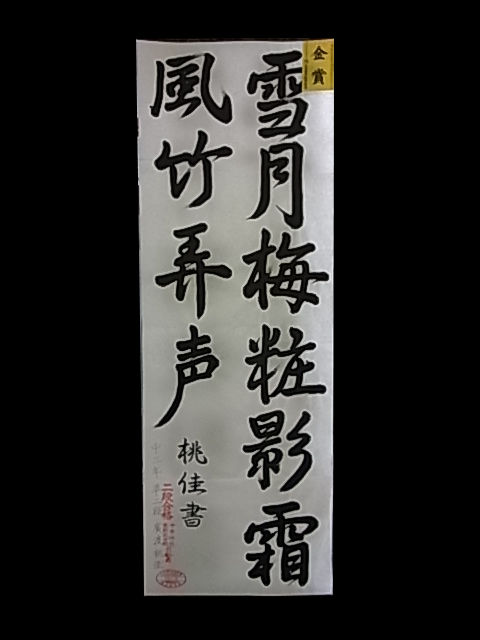 金賞
雪月梅粧影霜
風竹弄声
桃佳書
二段合格